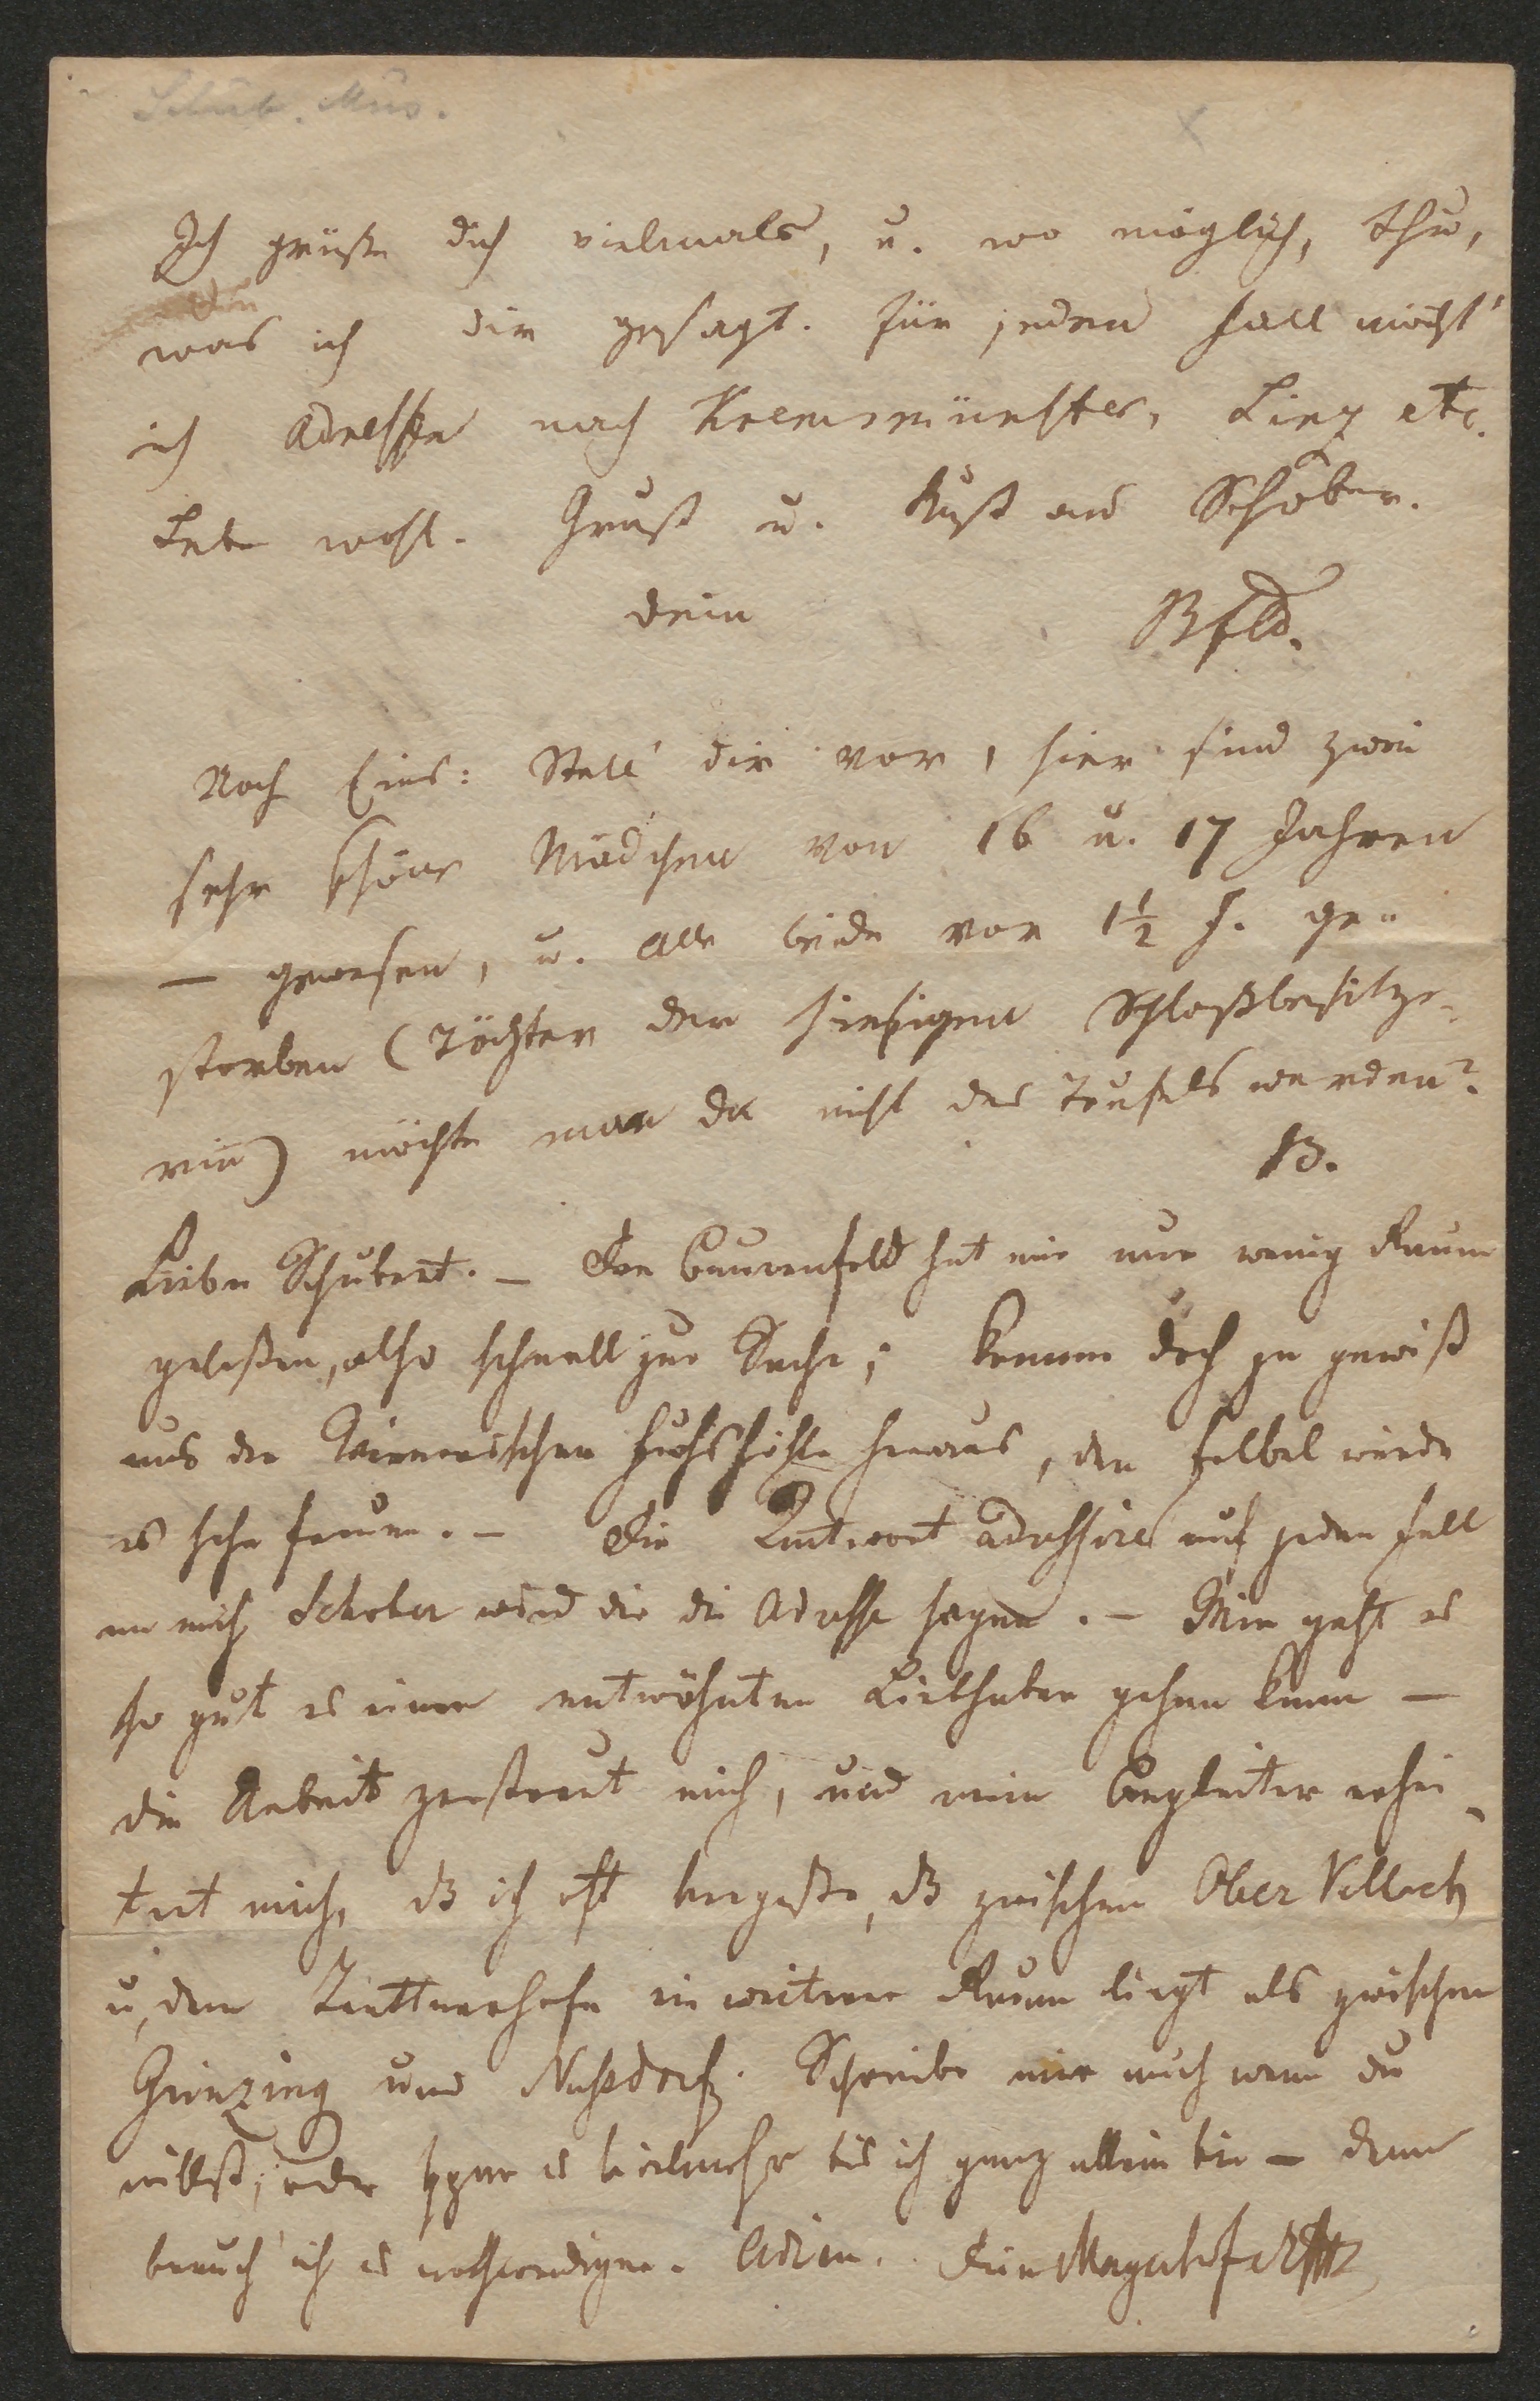 Schub. Mus.
Ich grüße dich vielmals, u. wo möglich, thu,
was ich dir gesagt. Für jeden Fall möcht'
ich Adressen nach Kremsmünster, Linz etc.
Lebe wohl. Gruß u. Kuß an Schober.
Dein Bfld.
Noch Eins: Stell' dir vor, hier sind zwei
sehr schöne Mädchen von 16 u. 17 Jahren
— gewesen, u. alle beide vor 1½ J. ge-
storben (Töchter der hiesigen Schloßbesitze-
rin) möchte man da nicht des Teufels werden?
B.
Lieber Schubert. — Der Bauernfeld hat mir nur wenig Raum
gelaßen, also schnell zur Sache; komm doch ja gewiß
aus der Wienerischen Fuchshöhle heraus, den
es sehr freuen. — Die Antwort adressire auf jeden Fall
an mich, Schober wird dir die Adresse sagen. — Mir geht es
so gut es einem entwöhnten Liebhaber gehen kann —
die Arbeit zerstreut mich, und mein Begleiter erhei-
tert mich, dß ich oft vergesse, dß zwischen Ober Vellach
u. dem Trattnerhofe ein weiterer Raum liegt als zwischen
Grinzing und Nußdorf. Schreibe mir auch wenn du
willst; oder spar es vielmehr bis ich ganz allein bin — dann
brauch ich es nothwendiger. Adieu. Dein Mayerhofer